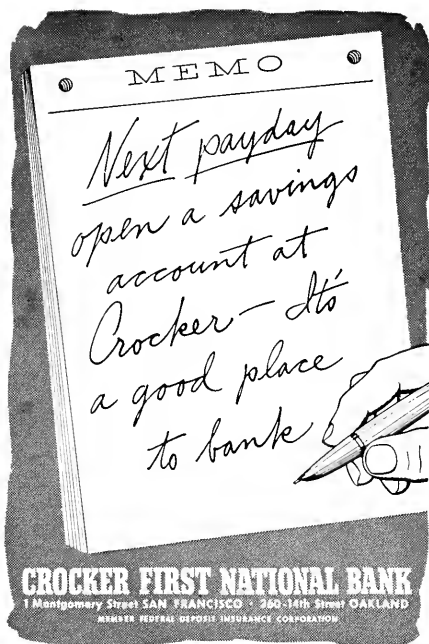 MEMO
Next payday
open a savings
account at
Crocker — It's
a good place
to bank
CROCKER FIRST NATIONAL BANK
1 Montgomery Street SAN FRANCISCO • 360-14th Street OAKLAND
MEMBER FEDERAL DEPOSIT INSURANCE CORPORATION